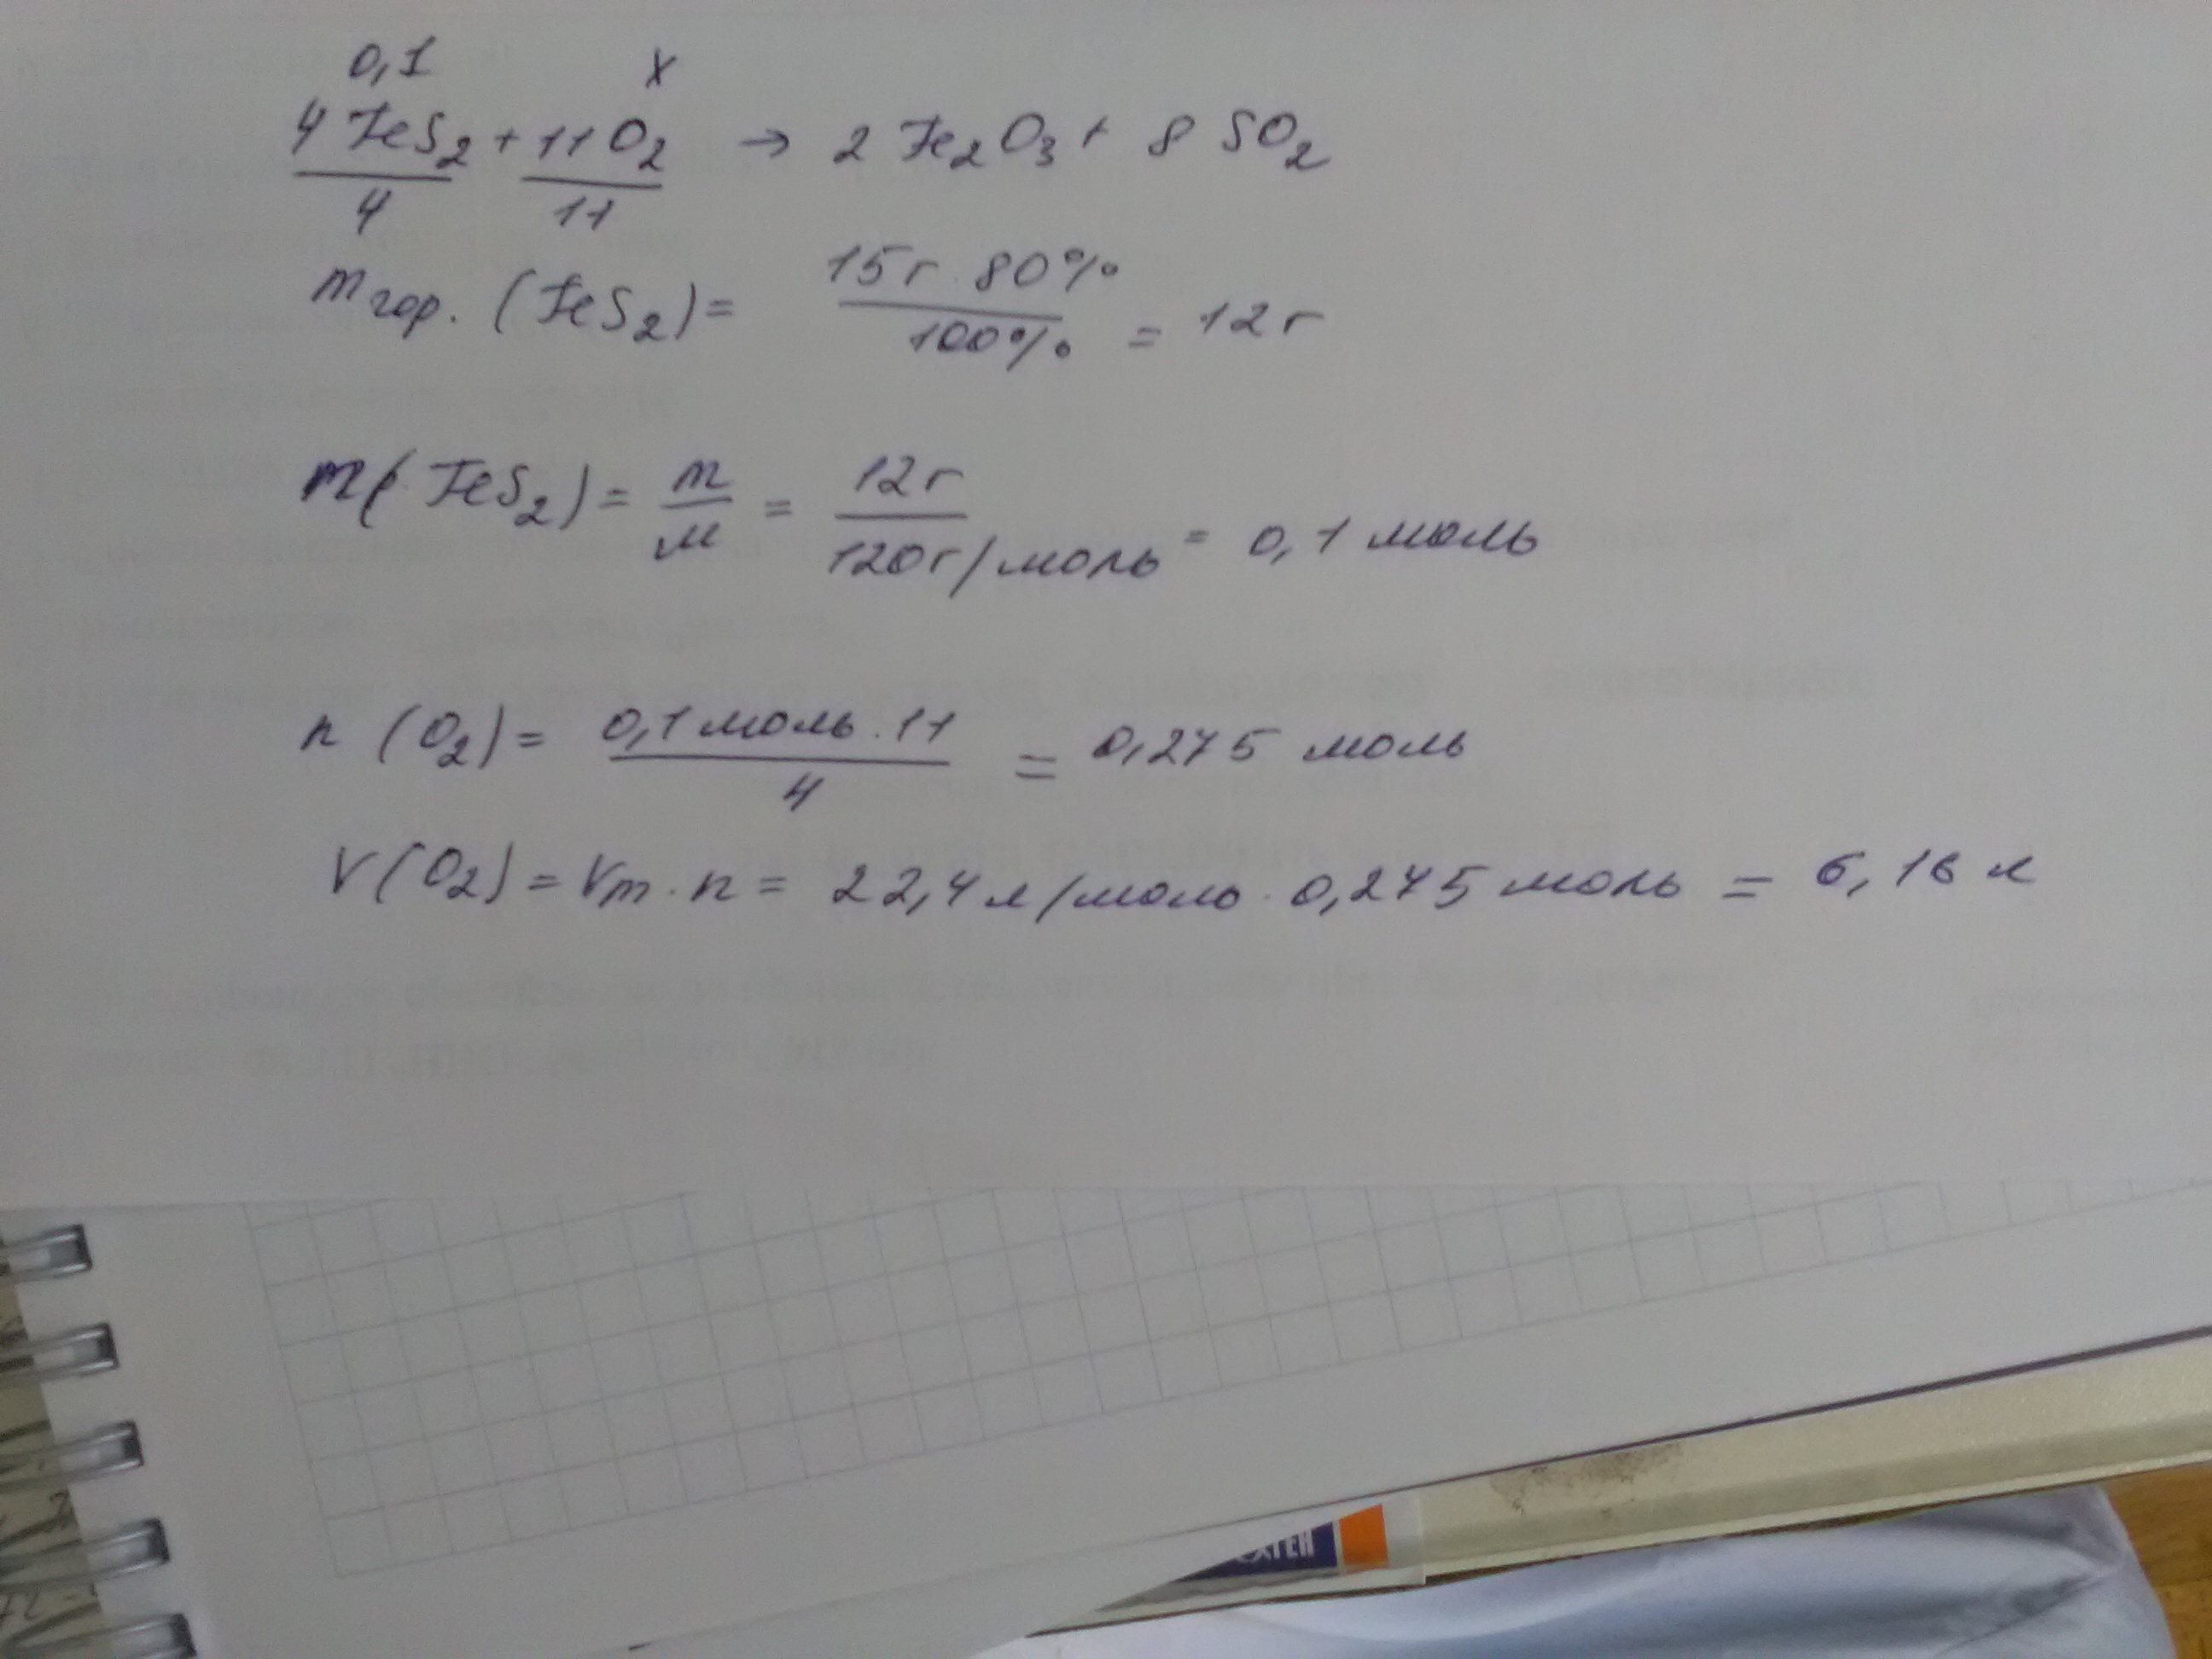 0,1 x
4 FeS2 + 11 O2 → 2 Fe2O3 + 8 SO2
4 11
mгор. (FeS2) = 15г · 80% / 100% = 12 г
m(FeS2) = m/M = 12г / 120г/моль = 0,1 моль
n (O2) = 0,1 моль · 11 / 4 = 0,275 моль
V(O2) = Vm · n = 22,4 л/моль · 0,275 моль = 6,16 л